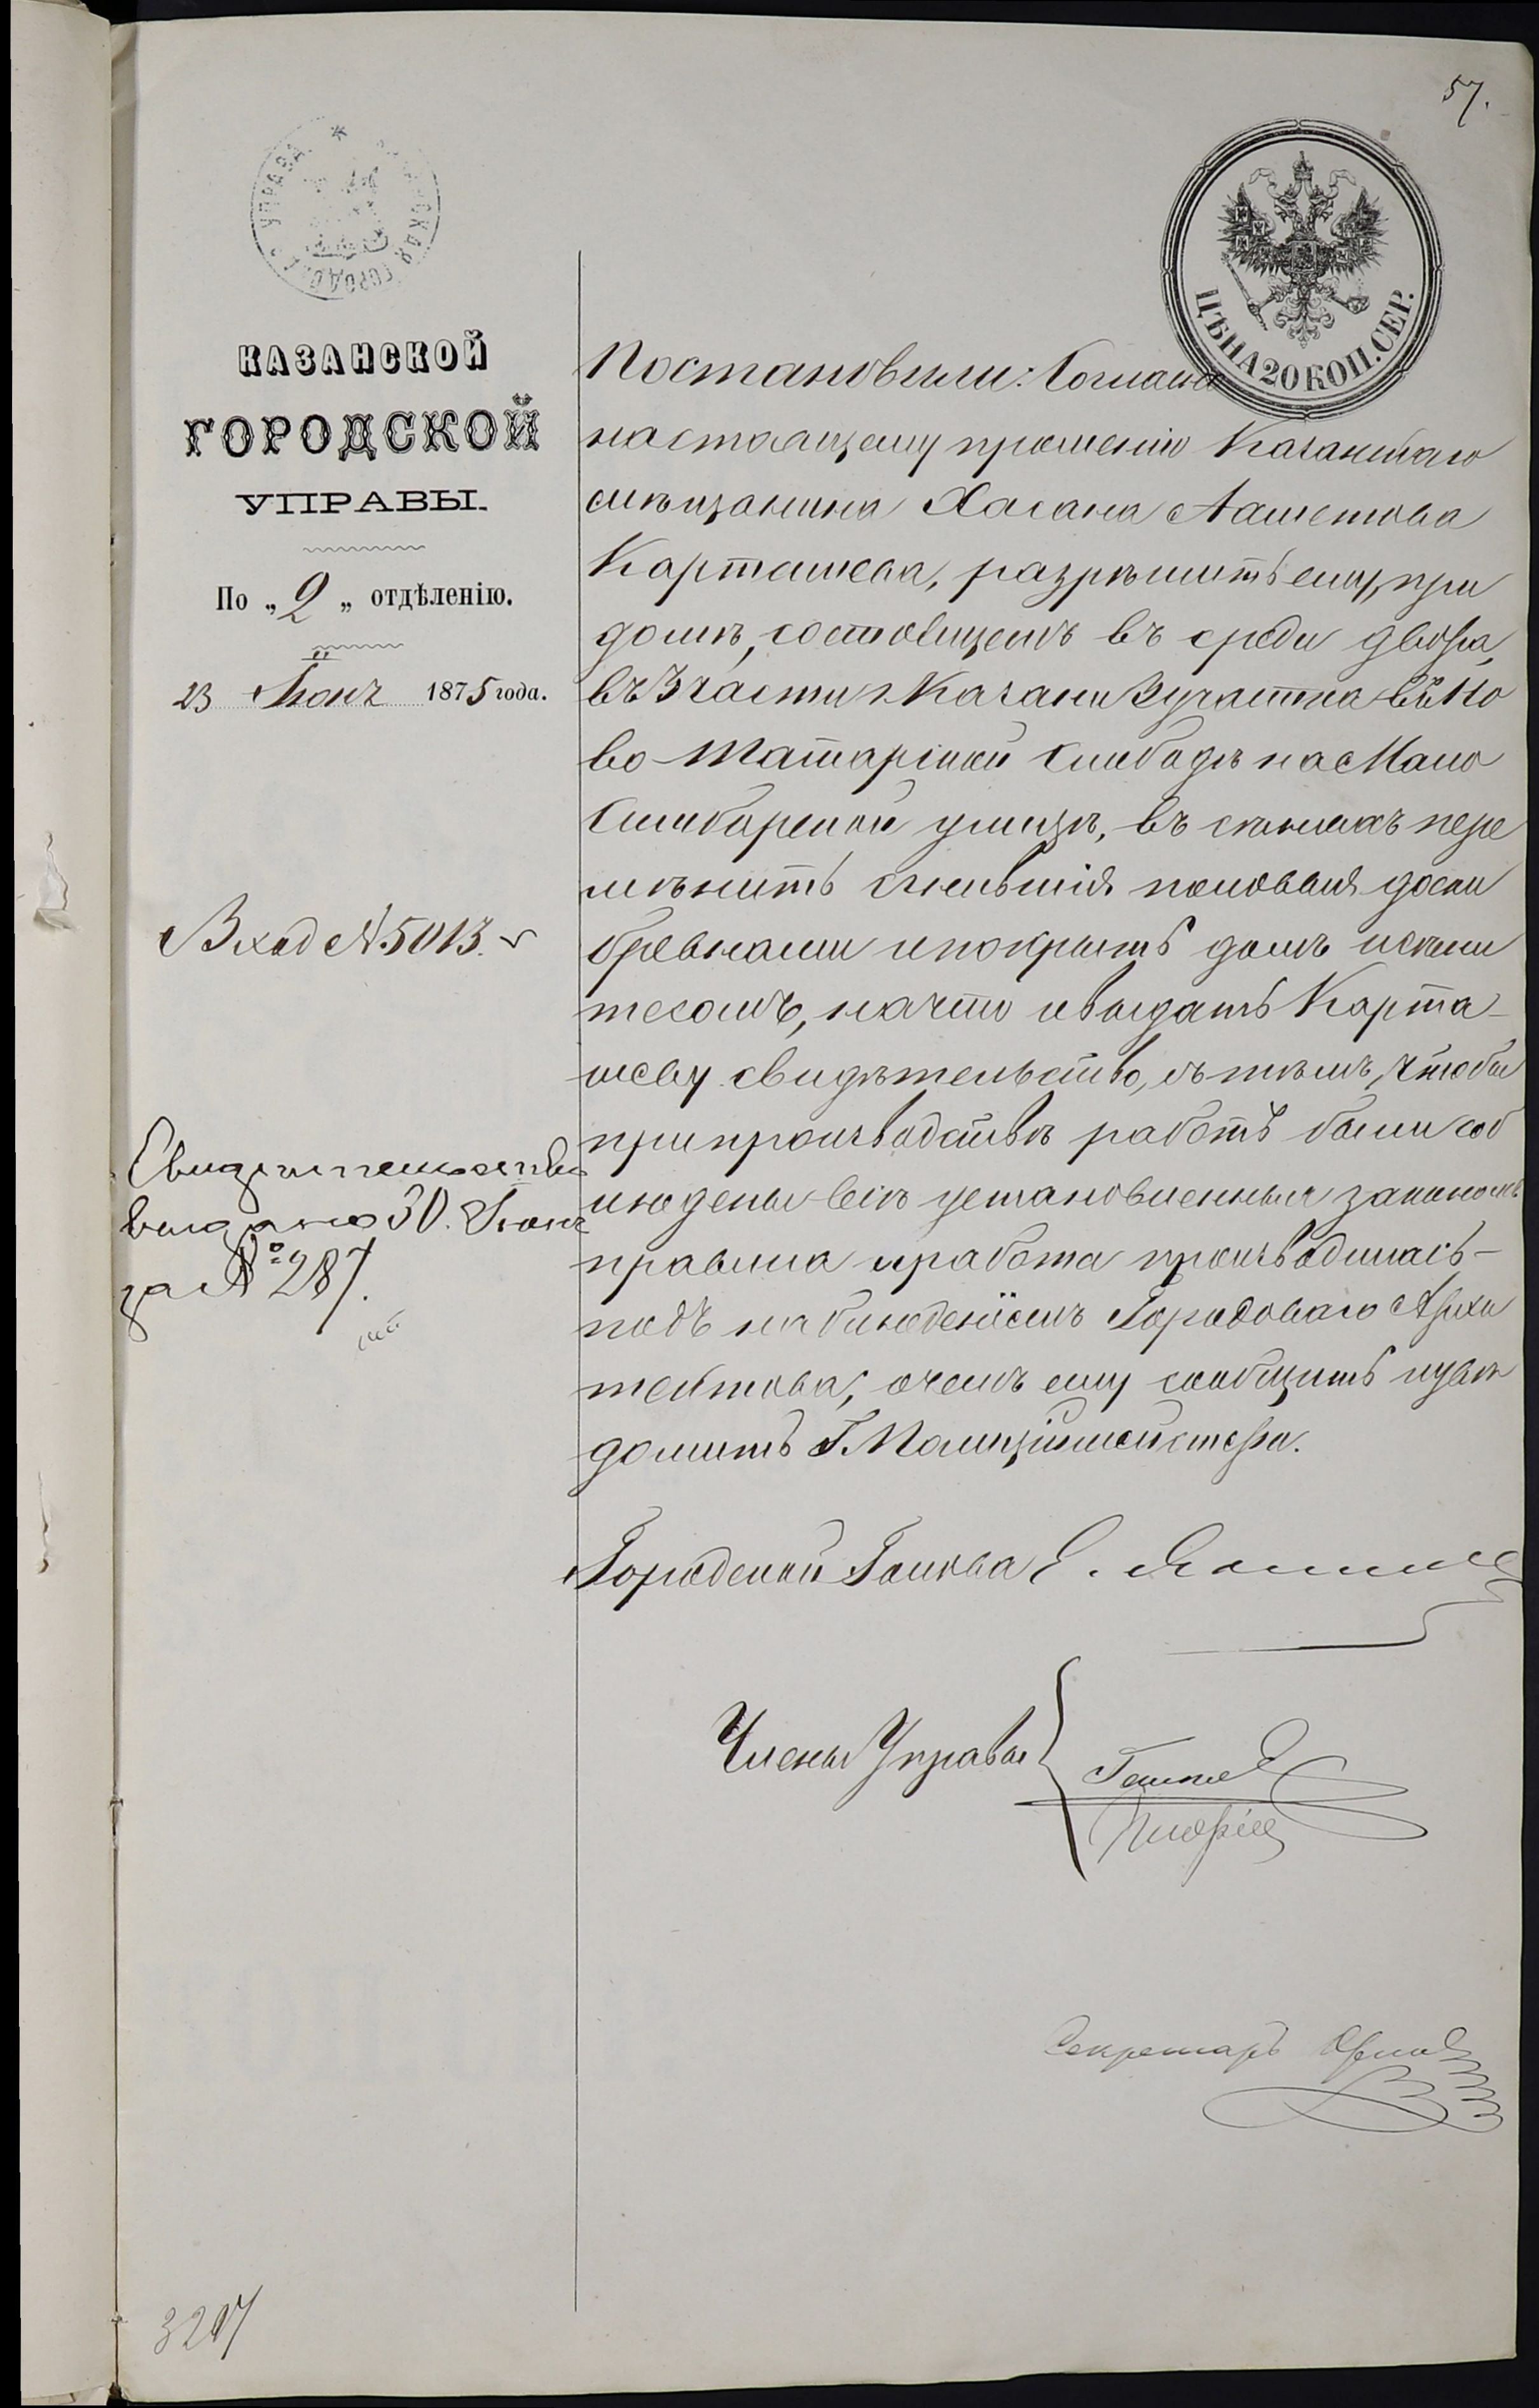 57.
КАЗАНСКАЯ ГОРОДСКАЯ УПРАВА *
ЦѢНА 20 КОП. СЕР.
КАЗАНСКОЙ
ГОРОДСКОЙ
УПРАВЫ.
По „2„ отдѣленію.
23 Іюня 1875 года.
Вход №5013.
Свидѣтельство
выдано 30. Іюня
за № 287.
Постановили: Согласно
настоящему прошенію Казанскаго
мѣщанина Хасана
Карташева, разрѣшить ему, при
домѣ, состоящемъ въ среди двора,
въ 3 части г. Казани 3 участка въ Но
во-Татарской Слободѣ на Мало
Симбирской улицѣ, въ сѣняхъ пере
мѣнить сгнившія половыя доски
бревнами и покрыть домъ и сѣни
тесомъ, на что и выдать Карта-
шеву свидѣтельство, съ тѣмъ, чтобы
при производствѣ работъ были соб
людены всѣ установленныя закономъ
правила и работа производилась-
подъ наблюденіемъ Городоваго Архи
тектора, о чемъ ему сообщить и увѣ
домить Г. Полиціймейстера.
Городской Голова Е.
Члены Управы
Секретарь
3217